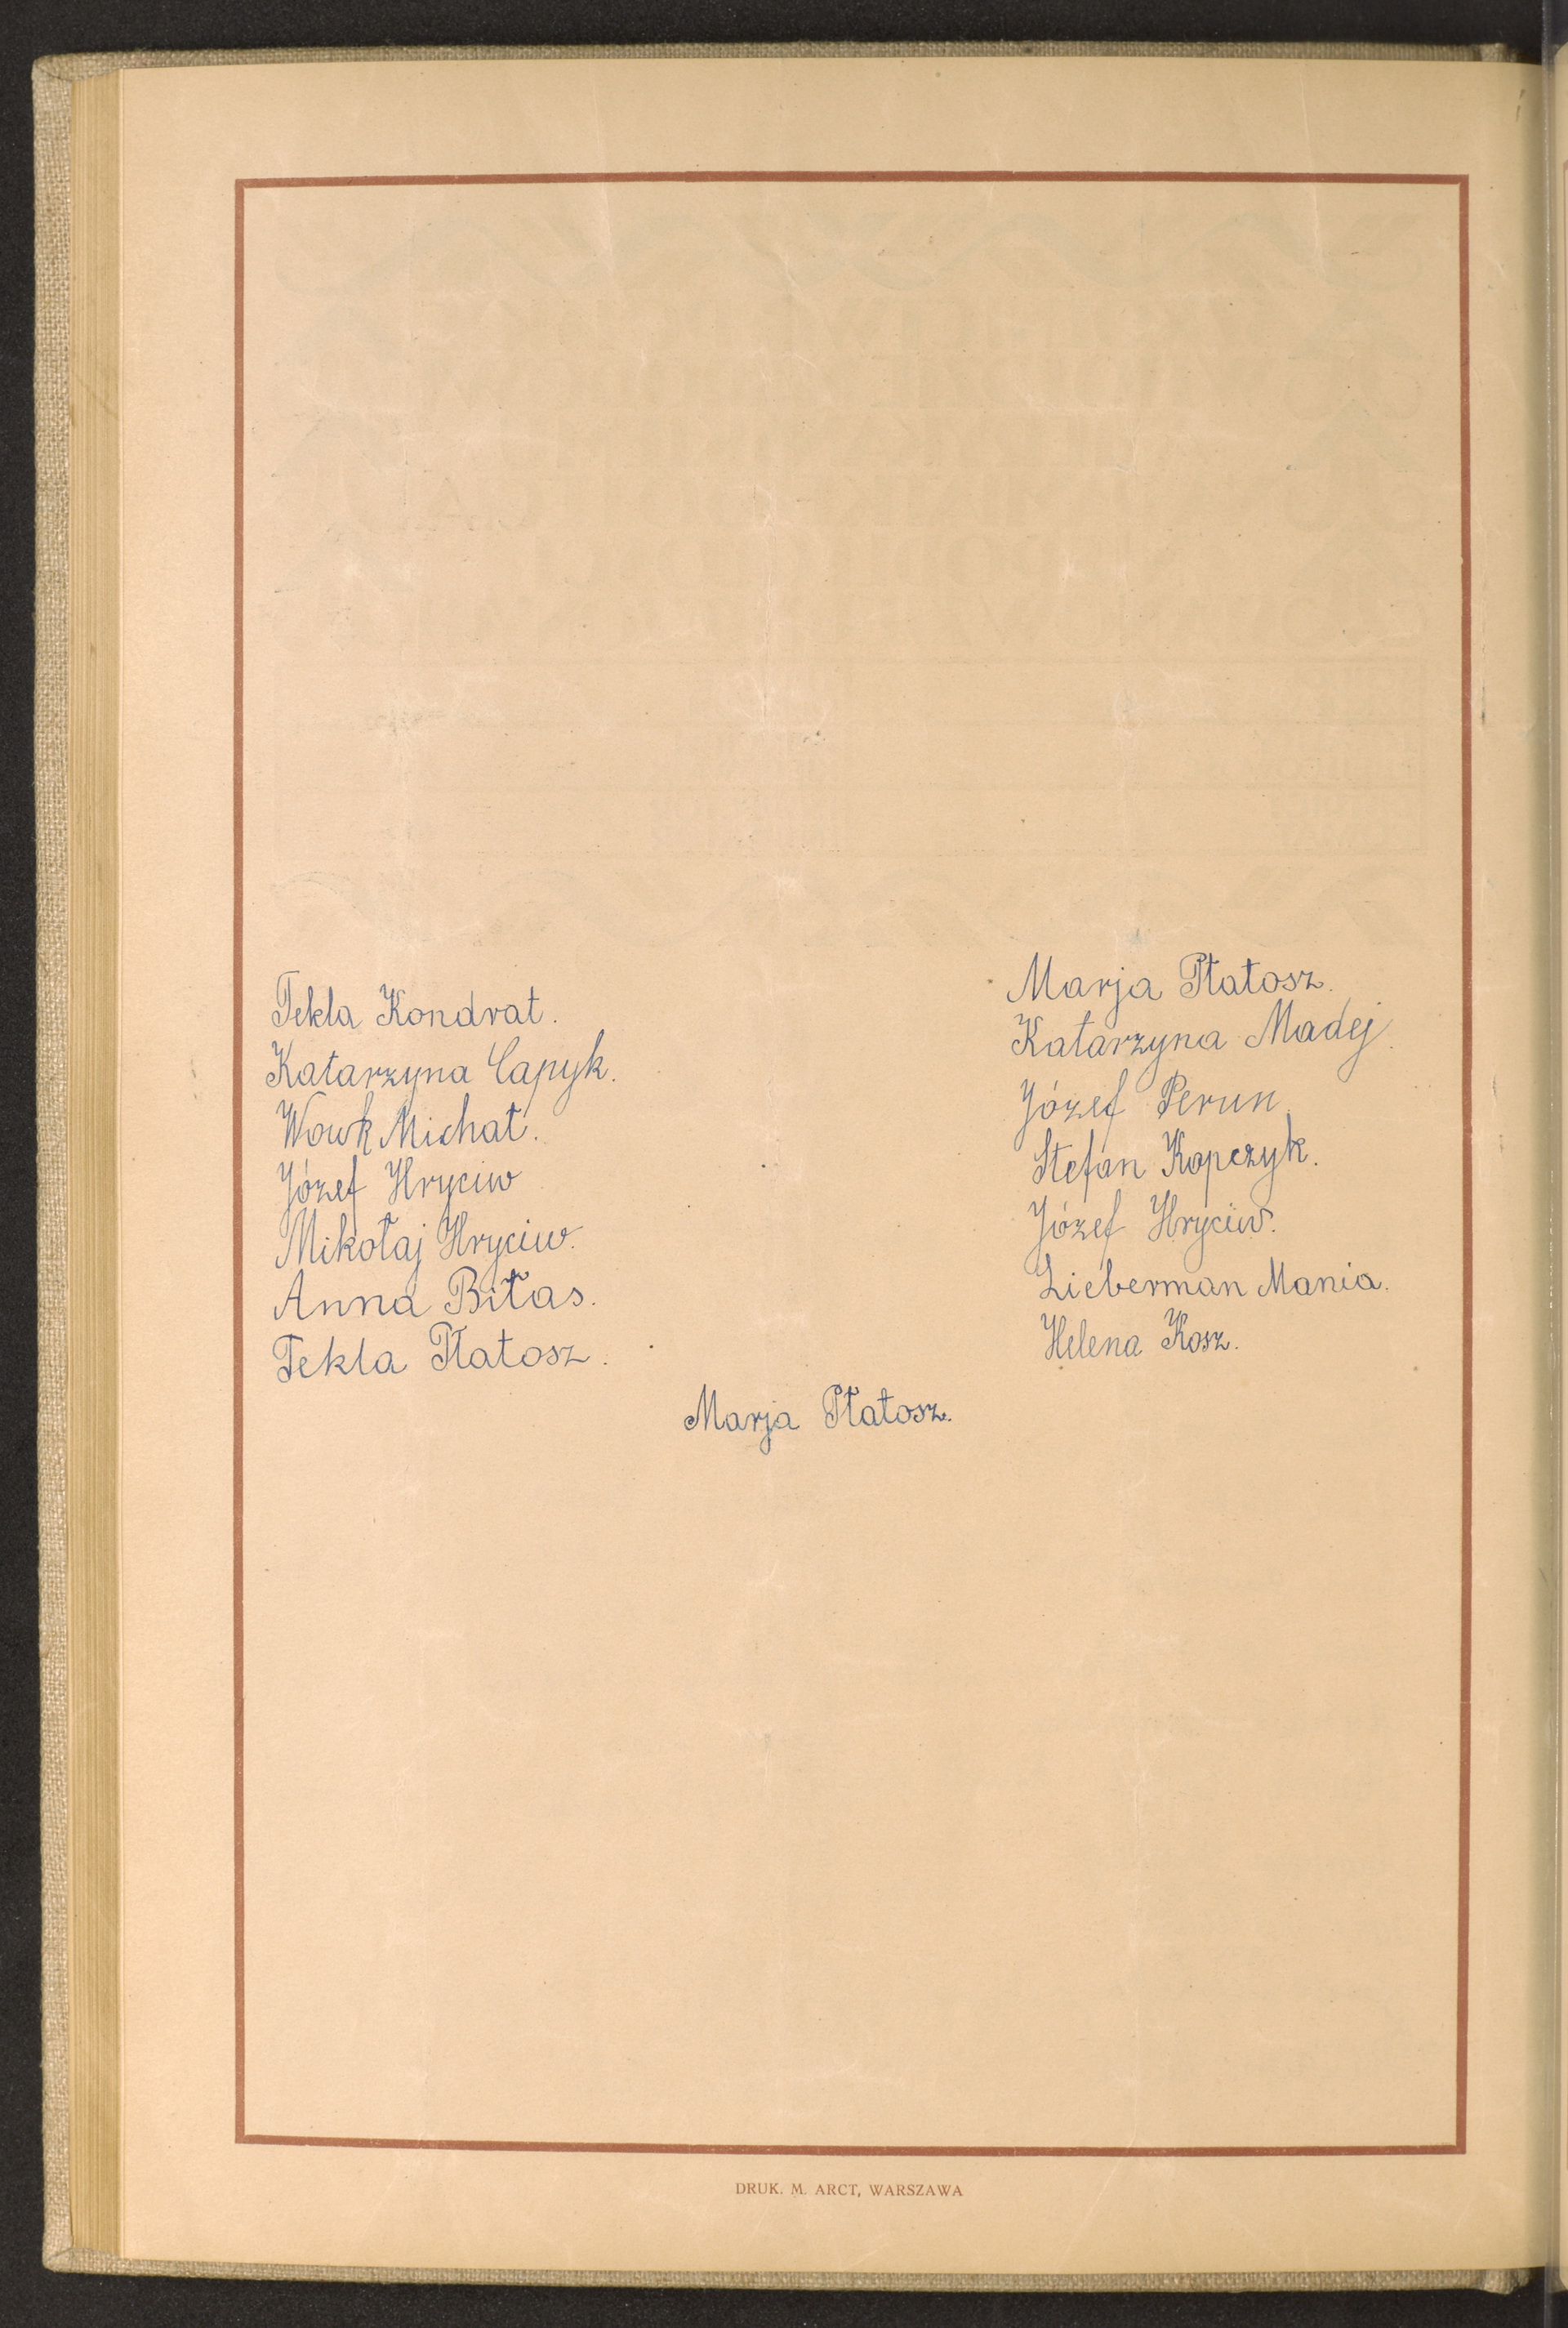 Tekla Kondrat.
Katarzyna Capyk.
Wowk Michał.
Józef Hryciw
Mikołaj Hryciw.
Anna Biłas.
Tekla Płatosz.
Marja Płatosz.
Katarzyna Madej.
Józef Perun.
Stefan Kopczyk.
Józef Hryciw.
Lieberman Mania.
Helena Kosz.
Marja Płatosz.
DRUK. M. ARCT, WARSZAWA